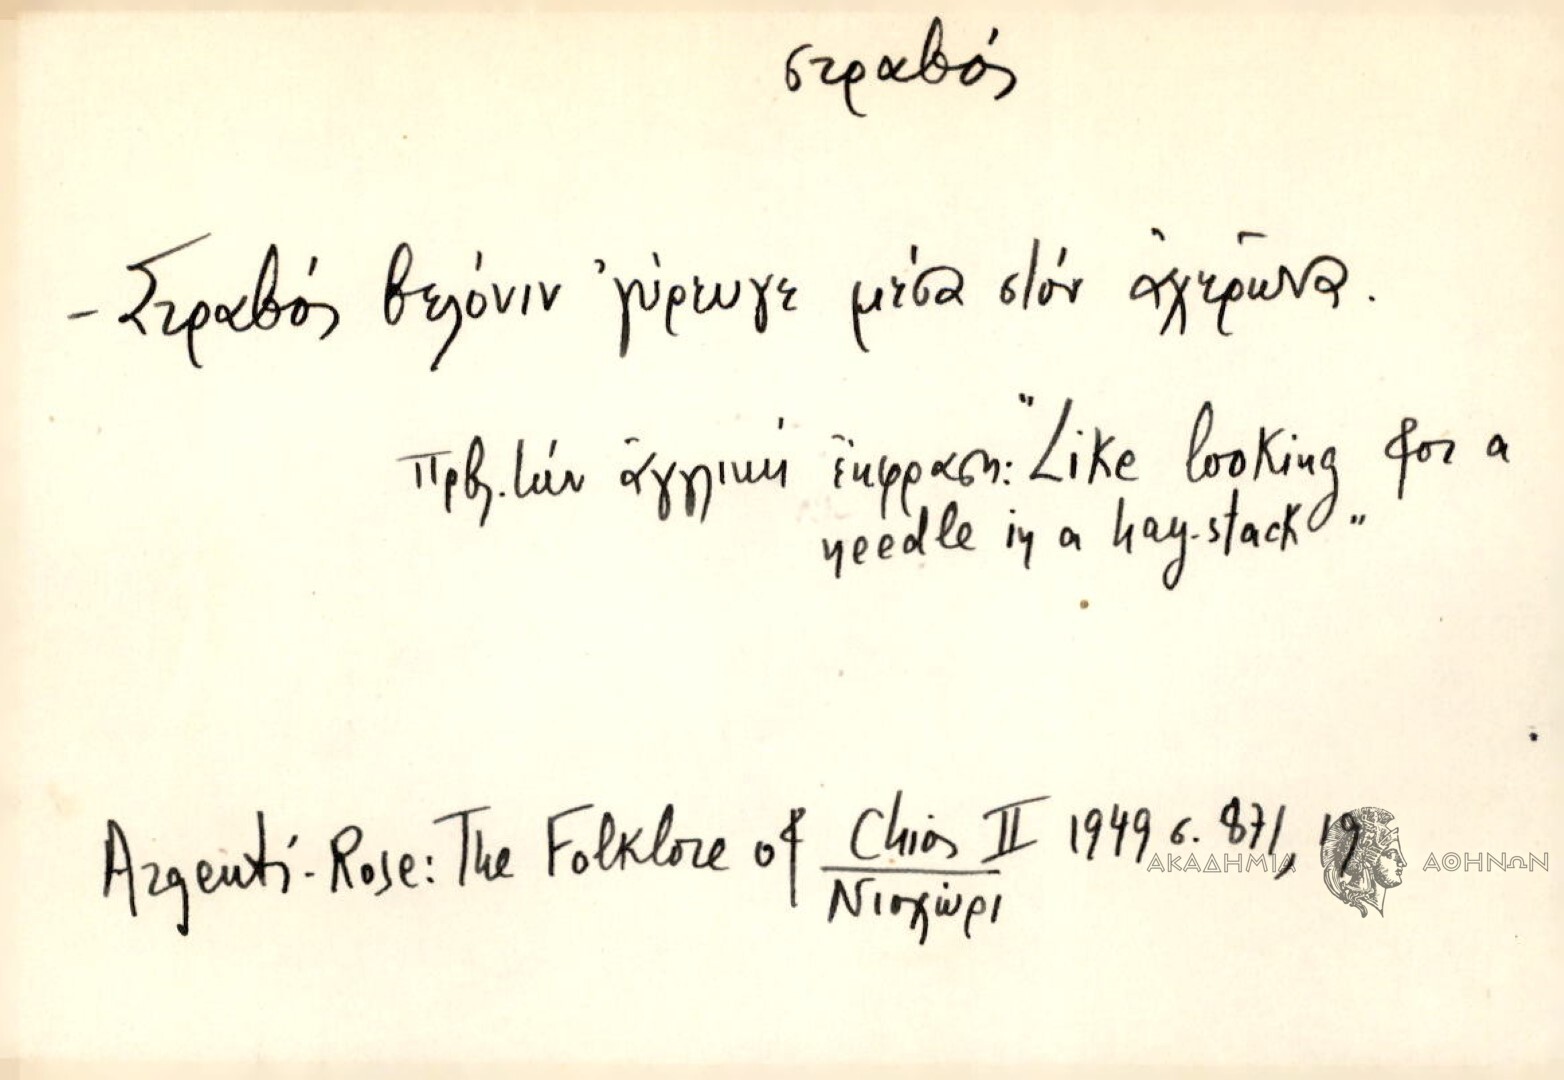 στραβός
- Στραβός βελόνιν 'γύρευγε μέσα στόν ἀχερῶνα.
Πρβλ. τήν ἀγγλική ἔκφραση: "Like looking for a
needle in a hay-stack"
Argenti-Rose: The Folklore of Chios II 1949 σ. 871, 19
Νιοχώρι
ΑΚΑΔΗΜΙΑ ΑΘΗΝΩΝ